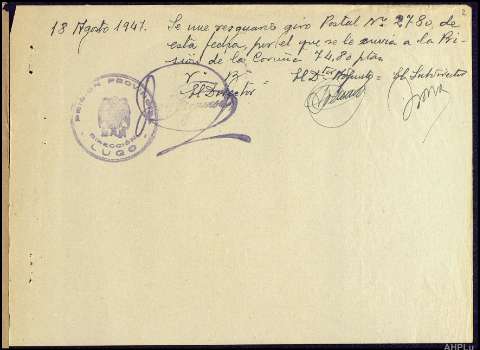 2
18 Agosto 1941. Se une resguardo giro Postal Nº 2780, de
esta fecha, por el que se le envia a la Pri-
sión de la Coruña 74,80 ptas
Vº Bº = El Dtor = El Subdirector
El Director
PRISION PROVINCIAL
DIRECCION
LUGO
AHPLu